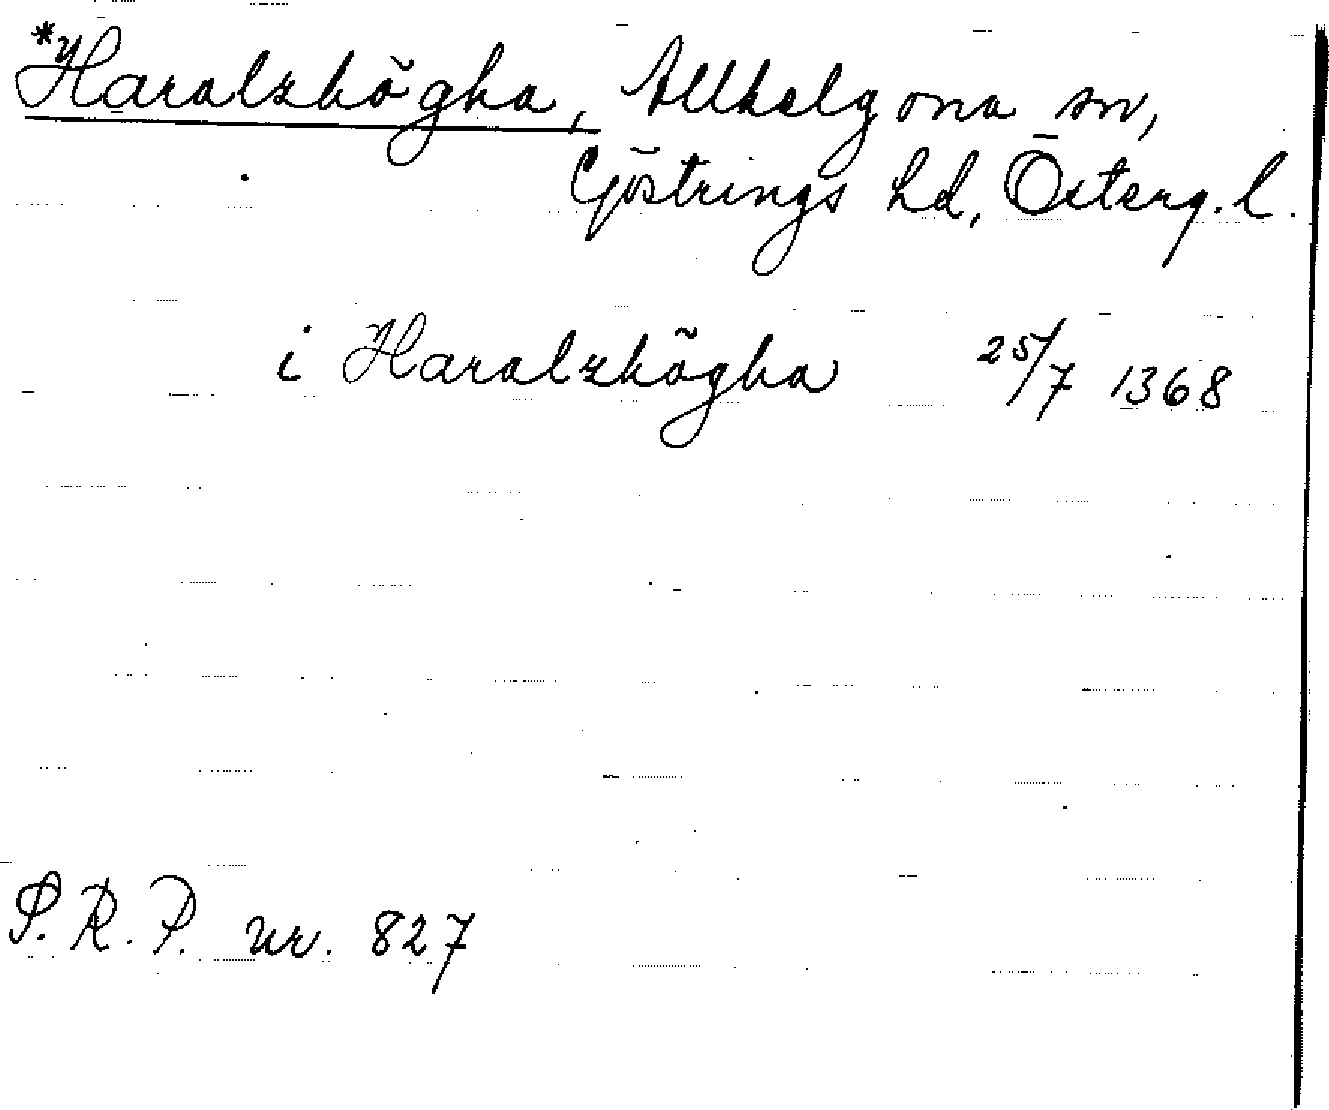 *Haralzhögha, Allhelgona sn,
Göstrings hd, Österg. l.
i Haralzhögha 25/7 1368
S.R.P. nr. 827